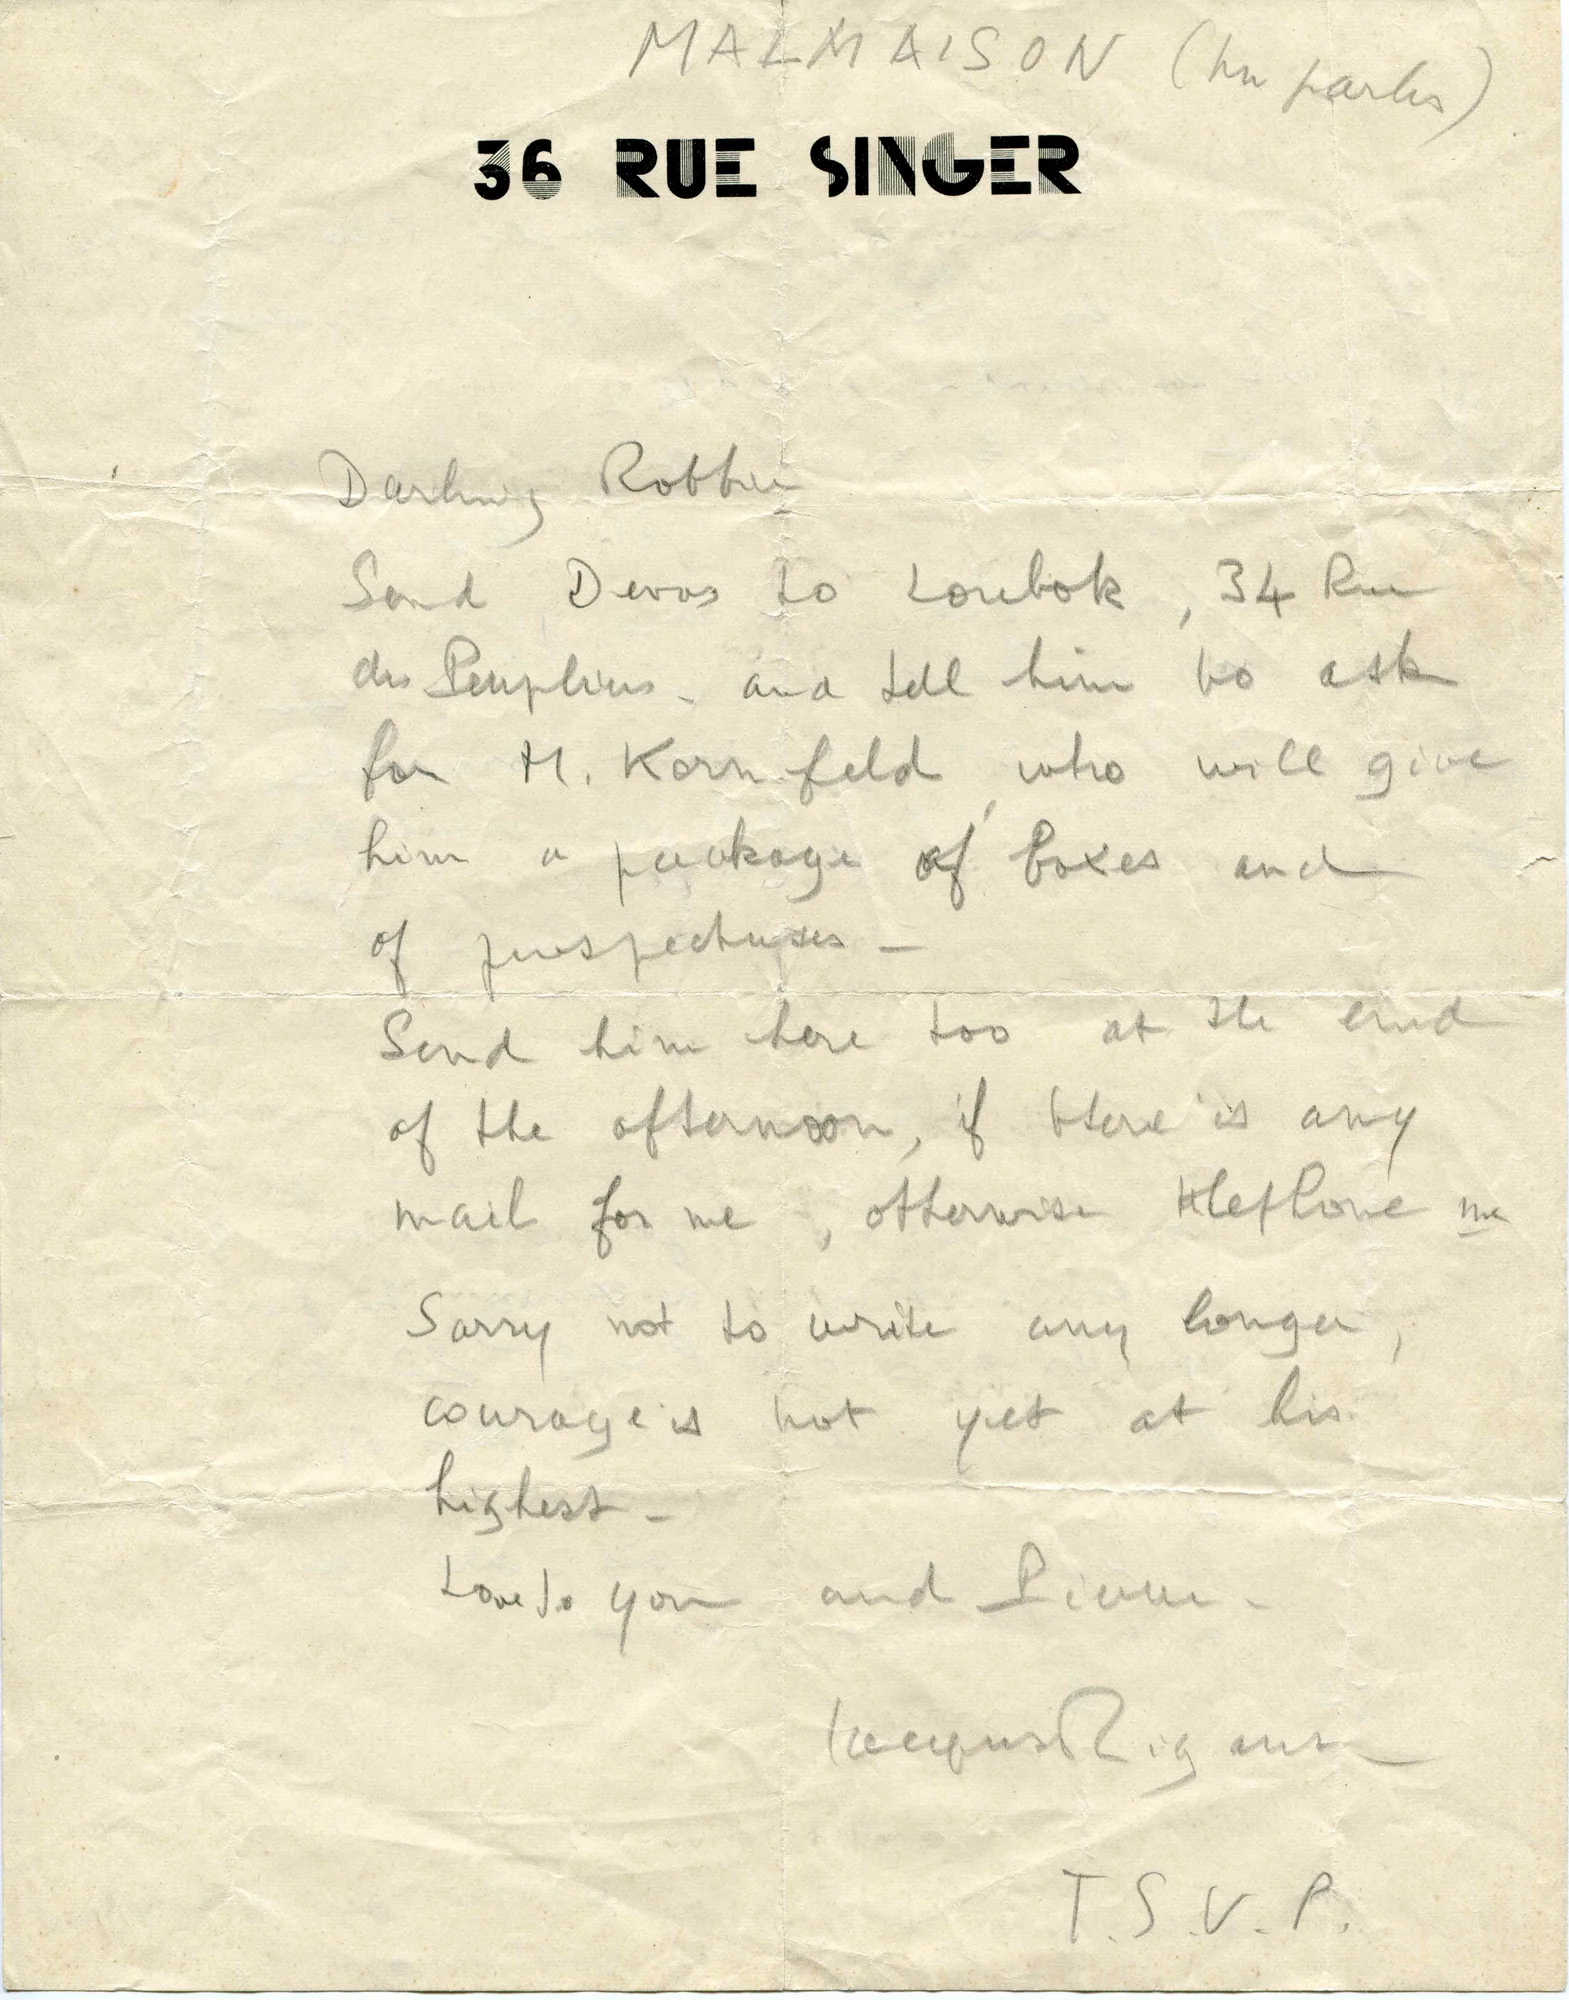 MALMAISON (tu parles)
36 RUE SINGER
Darling Robbie
Send Devos to Lorebok, 34 Rue
des Peupliers - and tell him to ask
for M. Kornfeld, who will give
him a package of boxes and
of prospectuses -
Send him here too at the end
of the afternoon, if there is any
mail for me, otherwise telephone me
Sorry not to write any longer,
courage is not yet at his
highest -
Love to you and Pierre -
Jacques Rigaut
T.S.V.P.